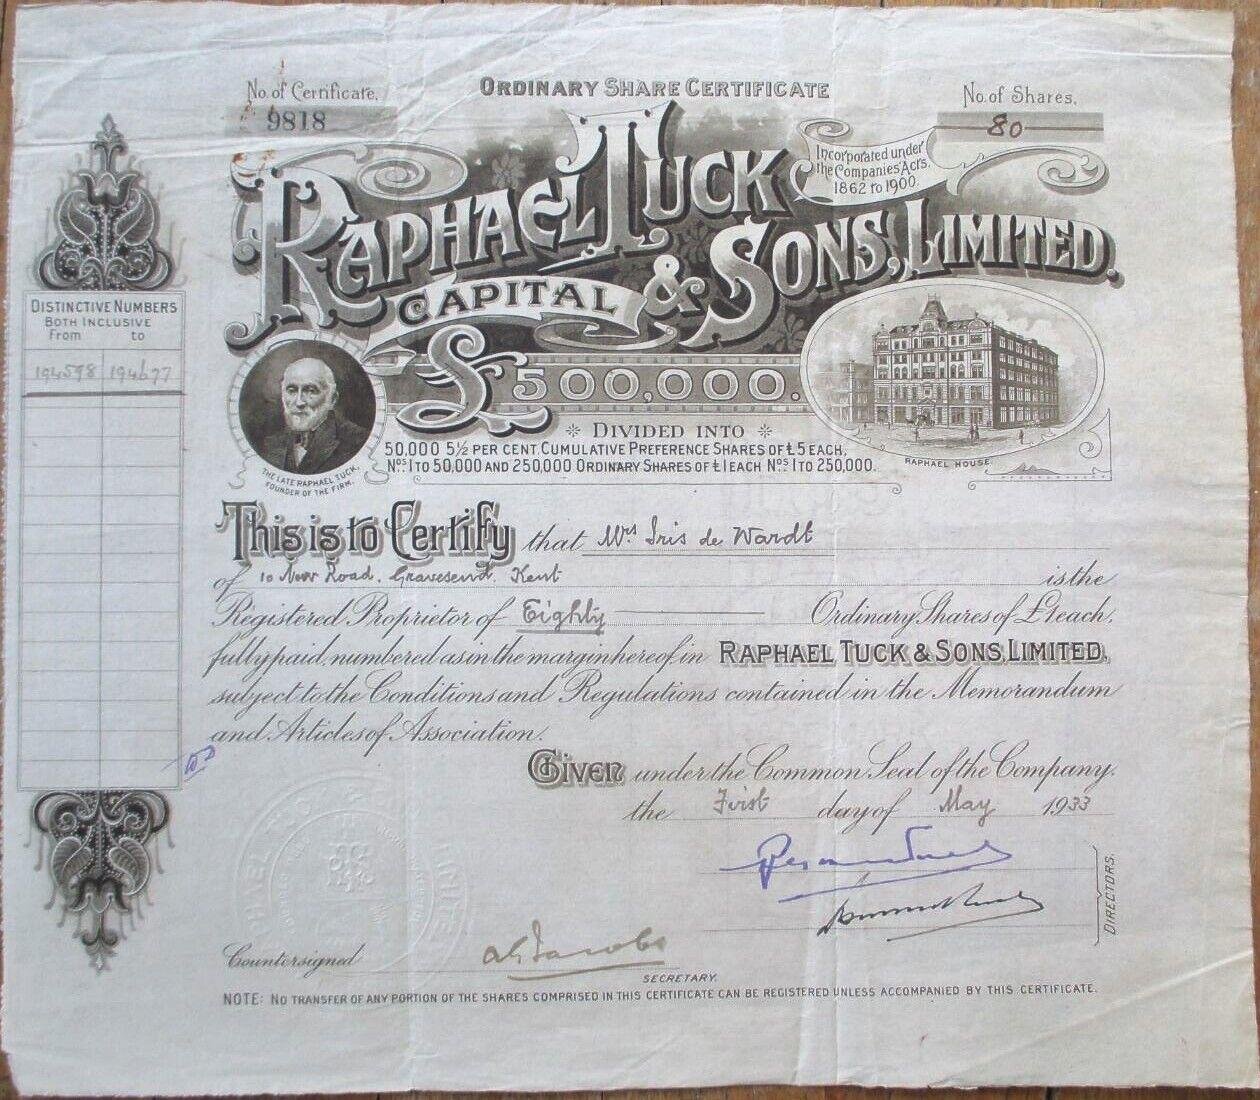 No. of Certificate.
9818
ORDINARY SHARE CERTIFICATE
No. of Shares.
80
RAPHAEL TUCK
& SONS, LIMITED.
Incorporated under
the Companies Acts.
1862 to 1900.
CAPITAL
£500,000.
DIVIDED INTO
50,000 5½ PER CENT. CUMULATIVE PREFERENCE SHARES OF £5 EACH,
Nos. 1 TO 50,000 AND 250,000 ORDINARY SHARES OF £1 EACH Nos 1 TO 250,000.
THE LATE RAPHAEL TUCK,
FOUNDER OF THE FIRM.
RAPHAEL HOUSE.
DISTINCTIVE NUMBERS
BOTH INCLUSIVE
From to
194598 194677
This is to Certify that Mrs Iris de Wardt
of 10 New Road, Gravesend, Kent is the
Registered Proprietor of Eighty Ordinary Shares of £1 each,
fully paid, numbered as in the margin hereof, in RAPHAEL TUCK & SONS, LIMITED,
subject to the Conditions and Regulations contained in the Memorandum
and Articles of Association.
Given under the Common Seal of the Company.
the First day of May 1933
DIRECTORS.
Countersigned
SECRETARY.
NOTE: NO TRANSFER OF ANY PORTION OF THE SHARES COMPRISED IN THIS CERTIFICATE CAN BE REGISTERED UNLESS ACCOMPANIED BY THIS CERTIFICATE.